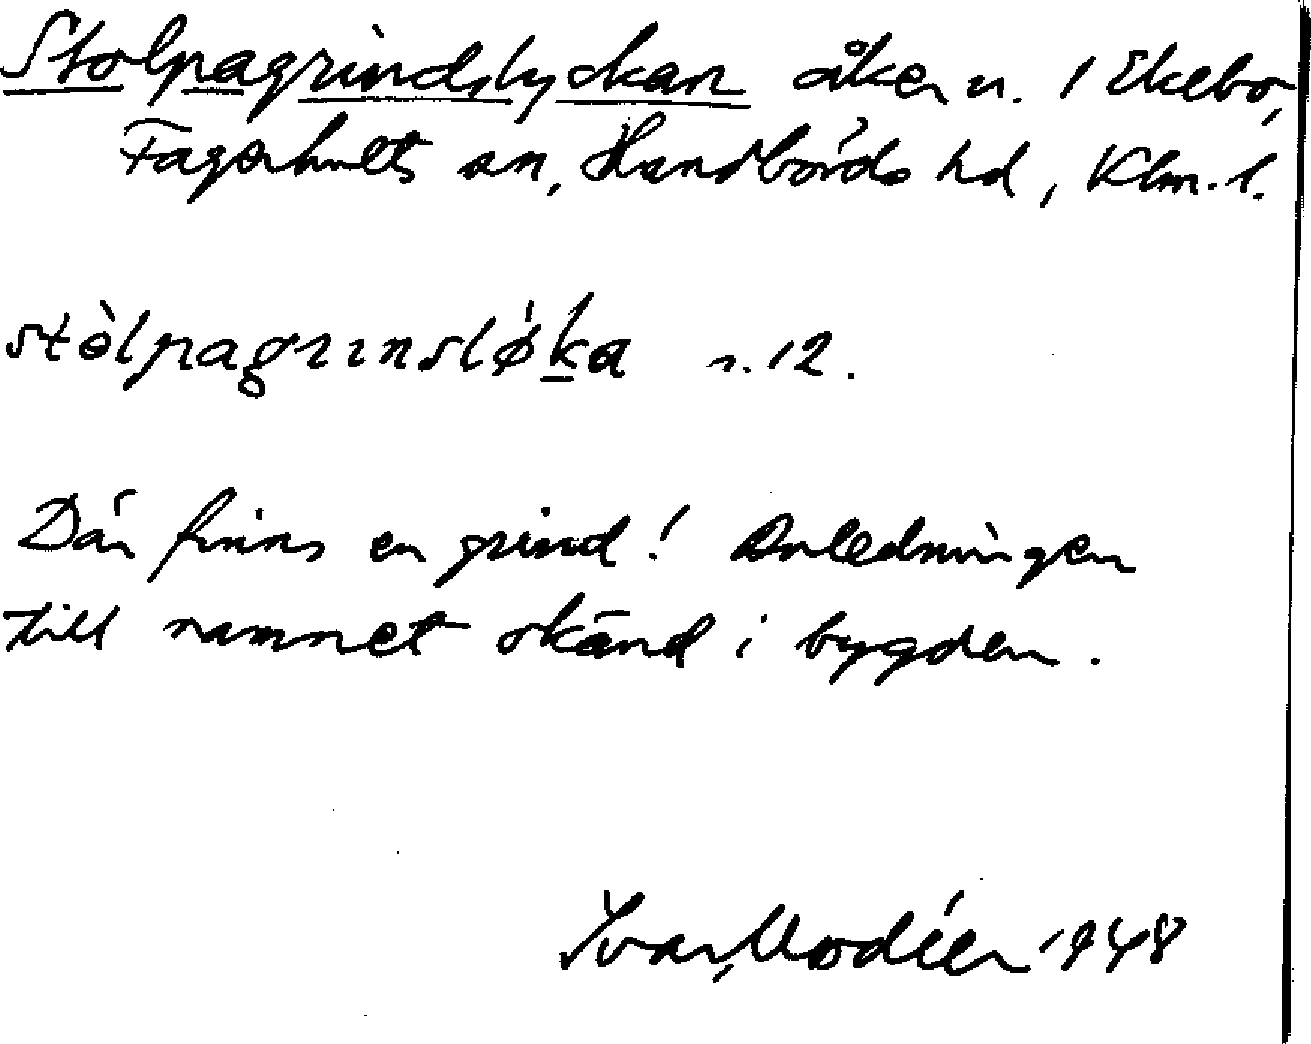 Stolpagrindslyckan åker n. 1 Ekebo,
Fagerhults sn, Handbörds hd, Klm. l.
stòlpagrɪnsløka n. 12.
Där finns en grind! Anledningen
till namnet okänd i bygden.
Ivar Modéer 1948